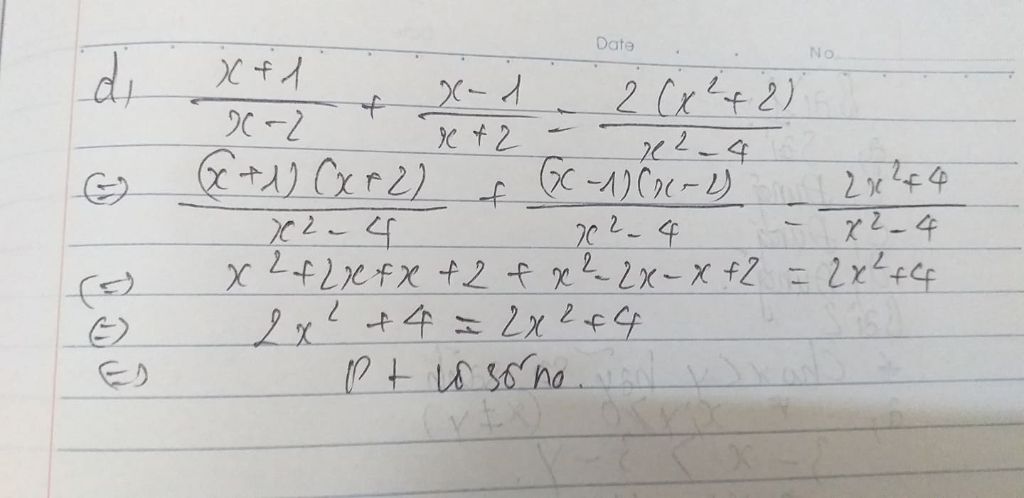 Date No
d, \frac{x+1}{x-2} + \frac{x-1}{x+2} = \frac{2(x²+2)}{x²-4}
(=) \frac{(x+1)(x+2)}{x²-4} + \frac{(x-1)(x-2)}{x²-4} = \frac{2x²+4}{x²-4}
(=) x²+2x+x+2+x²-2x-x+2 = 2x²+4
(=) 2x²+4 = 2x²+4
(=) Pt vô số no.